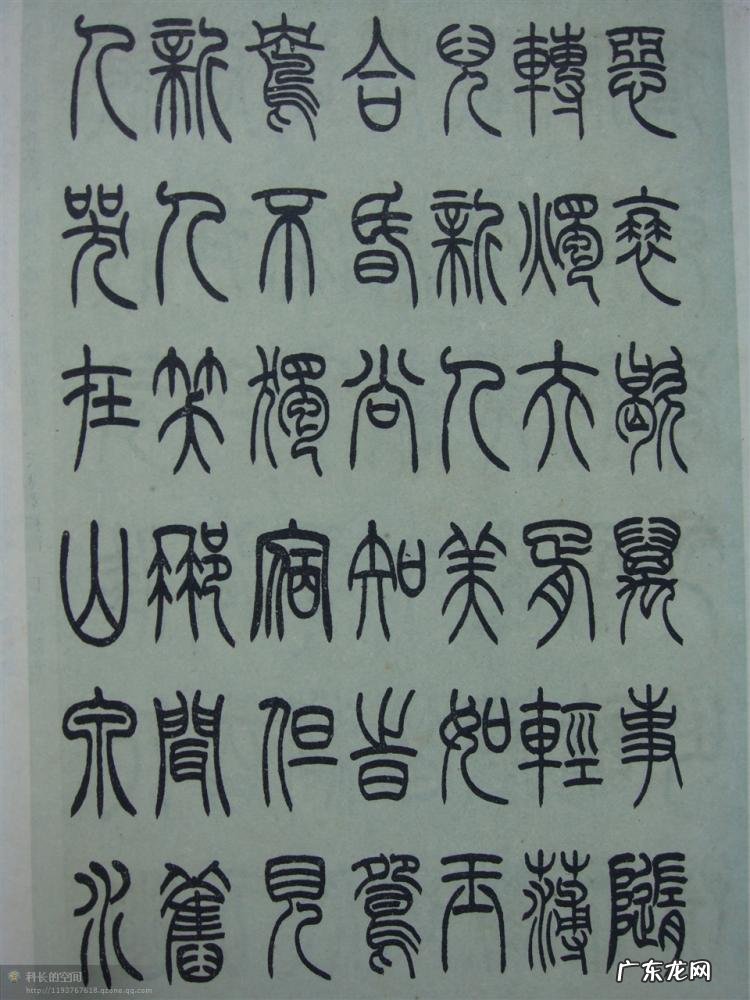 惡衰歇萬事隨
轉燭夫胥輕薄
兒新人美如玉
合昏尚知旹鴛
鴦不獨宿但見
新人笑那聞舊
人哭在山泉水
科长的空间
http://1193767618.qzone.qq.com
广东龙网